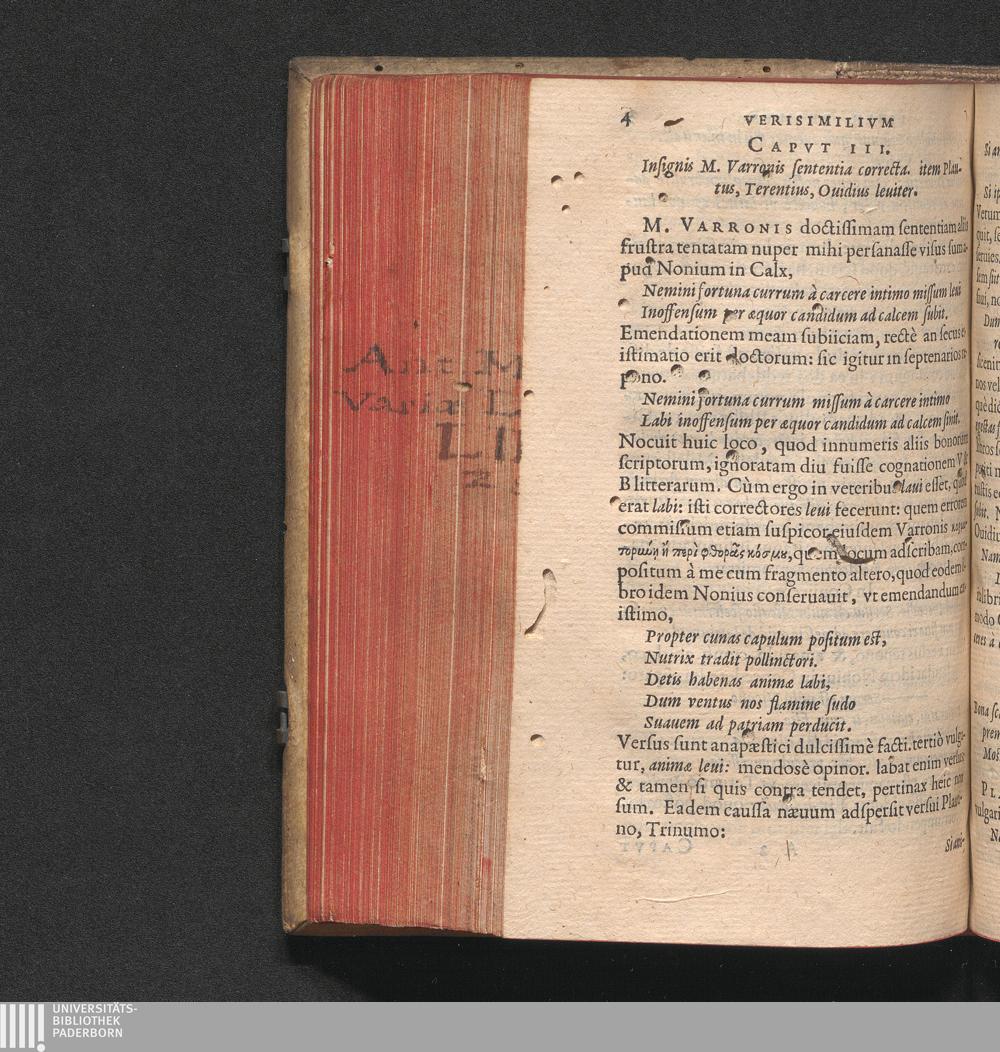 4 VERISIMILIVM
CAPVT III.
Inſignis M. Varronis ſententia correcta. item Plau-
tus, Terentius, Ouidius leuiter.
M. VARRONIS doctiſſimam ſententiam aliis
fruſtra tentatam nuper mihi perſanaſſe viſus ſum a-
pud Nonium in Calx,
Nemini fortuna currum à carcere intimo miſſum leui
Inoffenſum per æquor candidum ad calcem ſubit.
Emendationem meam ſubiiciam, rectè an ſecus e-
iſtimatio erit doctorum: ſic igitur in ſeptenarios re-
pono.
Nemini fortuna currum miſſum à carcere intimo
Labi inoffenſum per æquor candidum ad calcem ſinit.
Nocuit huic loco, quod innumeris aliis bonorum
ſcriptorum, ignoratam diu fuiſſe cognationem V &
B litterarum. Cùm ergo in veteribus laui eſſet, quod
erat labi: iſti correctores leui fecerunt: quem errorem
commiſſum etiam ſuſpicor eiuſdem Varronis
ἢ περὶ φθορᾶς κόσμου, quem locum adſcribam, com-
poſitum à me cum fragmento altero, quod eodem li-
bro idem Nonius conſeruauit, vt emendandum ex-
iſtimo,
Propter cunas capulum poſitum eſt,
Nutrix tradit pollinctori.
Detis habenas animæ labi,
Dum ventus nos flamine ſudo
Suauem ad patriam perducit.
Verſus ſunt anapæſtici dulciſſimè facti. tertiò vulga-
tur, animæ leui: mendosè opinor. labat enim verſus
& tamen ſi quis contra tendet, pertinax heic non
ſum. Eadem cauſſa næuum adſperſit verſui Plauti-
no, Trinumo:
Si ani-
Ant M
Variæ L
LI
UNIVERSITÄTS-
BIBLIOTHEK
PADERBORN